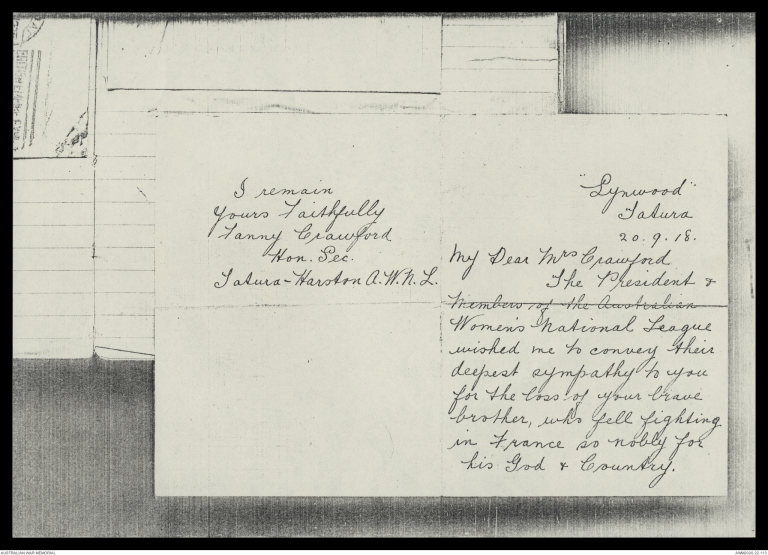 "Lynwood"
Tatura
20.9.18.
My Dear Mrs Crawford
The President &
Members of the Australian
Women's National League
wished me to convey their
deepest sympathy to you
for the loss of your brave
brother, who fell fighting
in France so nobly for
his God & Country.
I remain
Yours Faithfully
Fanny Crawford
Hon. Sec.
Tatura-Harston A.W.N.L.
AUSTRALIAN WAR MEMORIAL